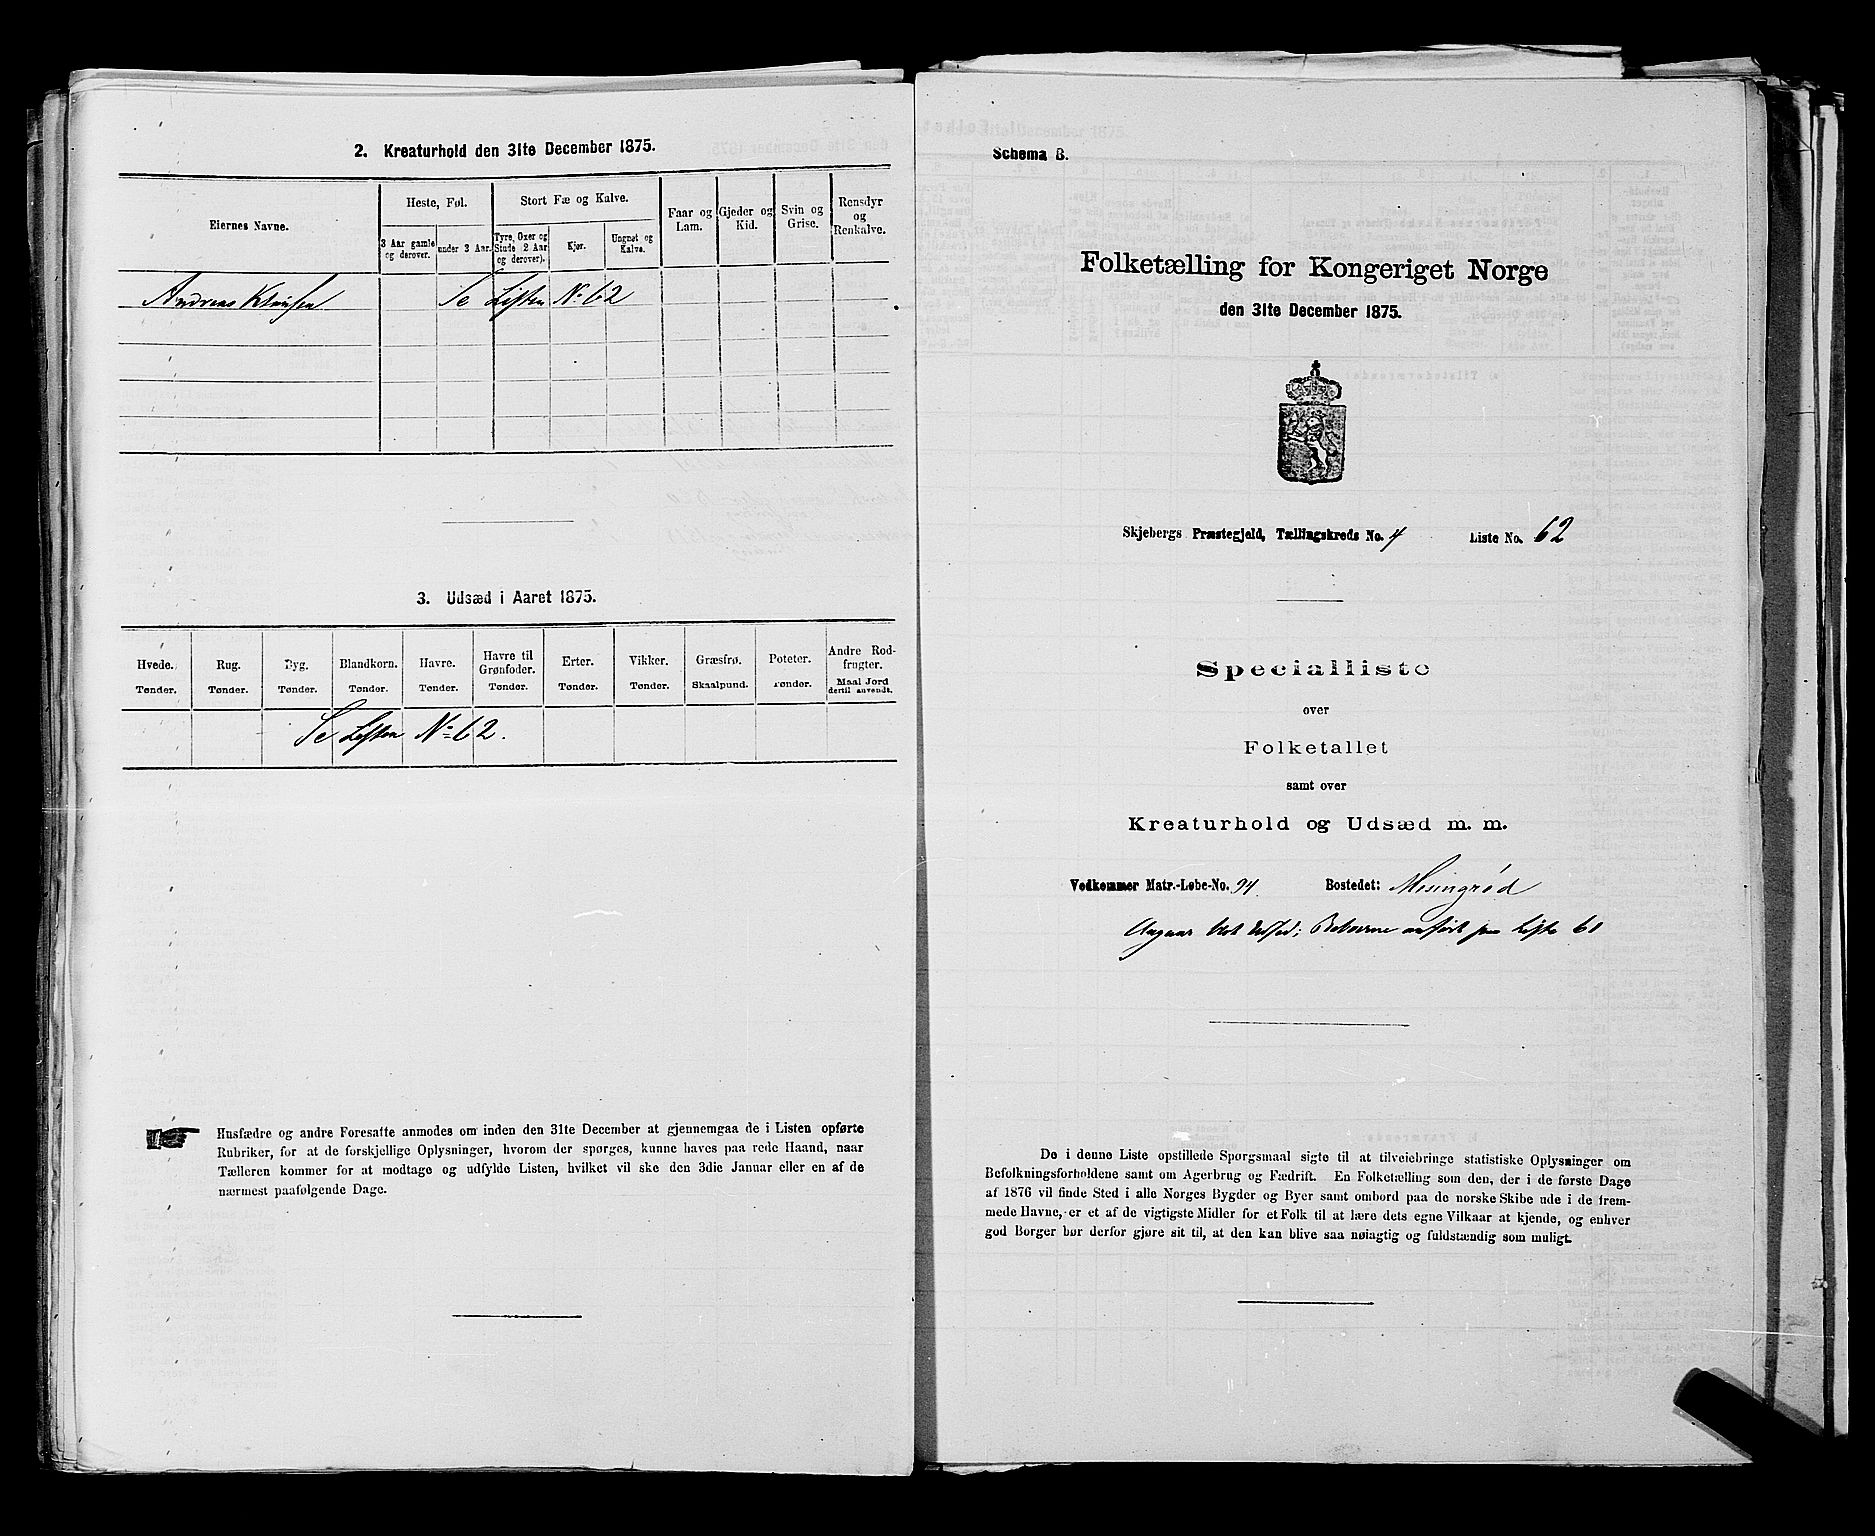 2. Kreaturhold den 31te December 1875.
Eiernes Navne.
Heste, Føl.
3 Aar gamle og derover.
under 3 Aar.
Stort Fæ og Kalve.
Tyre, Oxer og Stude 2 Aar og derover).
Kjør.
Ungnøt og Kalve.
Faar og Lam.
Gjeder og Kid.
Svin og Grise.
Rensdyr og Renkalve.
Andreas Se Listen No 62
3. Udsæd i Aaret 1875.
Hvede. Rug. Byg. Blandkorn. Havre. Havre til Grønfoder. Erter. Vikker. Græsfrø. Poteter. Andre Rodfrugter.
Tønder. Tønder. Tønder. Tønder. Tønder. Tønder. Tønder. Tønder. Skaalpund. Tønder. Maal Jord dertil anvendt.
Se Listen No 62.
Husfædre og andre Foresatte anmodes om inden den 31te December at gjennemgaa de i Listen opførte
Rubriker, for at de forskjellige Oplysninger, hvorom der spørges, kunne haves paa rede Haand, naar
Tælleren kommer for at modtage og udfylde Listen, hvilket vil ske den 3die Januar eller en af de
nærmest paafølgende Dage.
Schema B.
Folketælling for Kongeriget Norge
den 31te December 1875.
Skjebergs Præstegjeld, Tællingskreds No. 4 Liste No. 62
Specialliste
over
Folketallet
samt over
Kreaturhold og Udsæd m. m.
Vedkommer Matr.-Løbe-No. 94 Bostedet: Misingrød
Angaar blot Udsæd; Beboerne anført paa Liste 61
De i denne Liste opstillede Spørgsmaal sigte til at tilveiebringe statistiske Oplysninger om
Befolkningsforholdene samt om Agerbrug og Fædrift. En Folketælling som den, der i de første Dage
af 1876 vil finde Sted i alle Norges Bygder og Byer samt ombord paa de norske Skibe ude i de frem-
mede Havne, er et af de vigtigste Midler for et Folk til at lære dets egne Vilkaar at kjende, og enhver
god Borger bør derfor gjøre sit til, at den kan blive saa nøiagtig og fuldstændig som muligt.